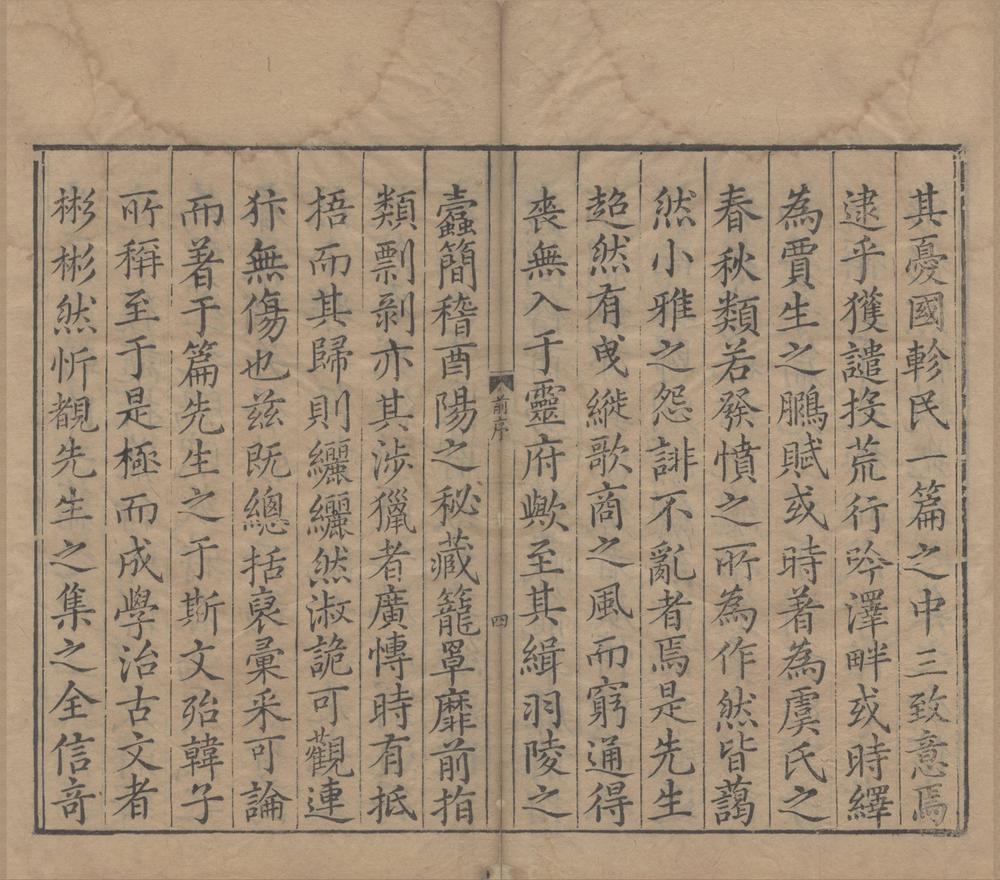 其憂國軫民一篇之中三致意焉
逮乎獲譴投荒行吟澤畔或時繹
為賈生之鵩賦或時著為虞氏之
春秋類若發憤之所為作然皆藹
然小雅之怨誹不亂者焉是先生
超然有曳縰歌商之風而窮通得
喪無入于靈府歟至其緝羽陵之
前序
四
蠹簡稽酉陽之秘藏籠罩靡前指
類剽剝亦其涉獵者廣慱時有抵
捂而其歸則纚纚然淑詭可觀連
犿無傷也茲既總括裒彚采可論
而著于篇先生之于斯文殆韓子
所稱至于是極而成學治古文者
彬彬然忻覩先生之集之全信竒